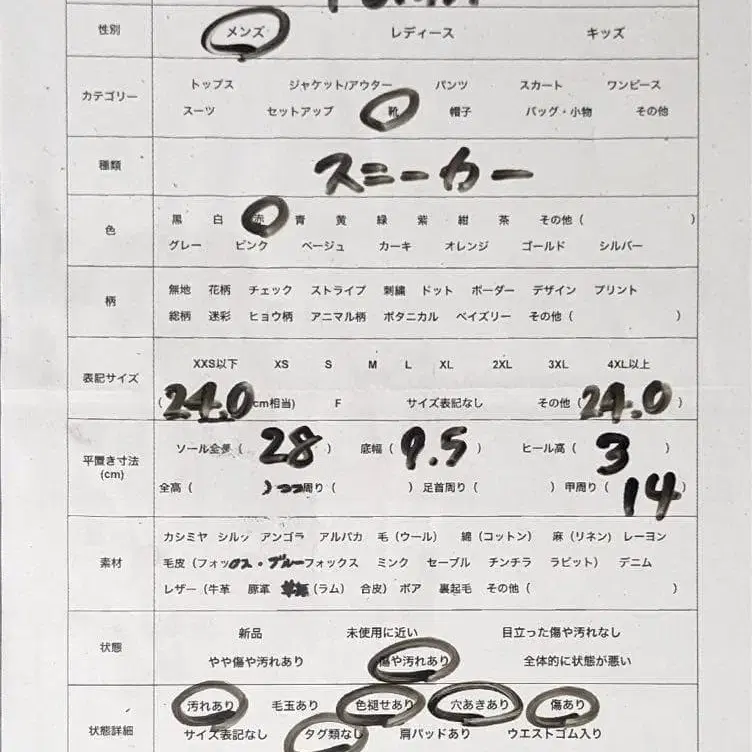 性別 メンズ レディース キッズ
カテゴリー トップス ジャケット/アウター パンツ スカート ワンピース
スーツ セットアップ 靴 帽子 バッグ・小物 その他
種類 スニーカー
色 黒 白 赤 青 黄 緑 紫 紺 茶 その他 ( )
グレー ピンク ベージュ カーキ オレンジ ゴールド シルバー
柄 無地 花柄 チェック ストライプ 刺繍 ドット ボーダー デザイン プリント
総柄 迷彩 ヒョウ柄 アニマル柄 ボタニカル ペイズリー その他 ( )
表記サイズ XXS以下 XS S M L XL 2XL 3XL 4XL以上
( 24.0 cm相当) F サイズ表記なし その他 ( 24.0 )
平置き寸法 (cm) ソール全長 ( 28 ) 底幅 ( 9.5 ) ヒール高 ( 3 )
全高 ( ) 周り ( ) 足首周り ( ) 甲周り ( 14 )
素材 カシミヤ シルク アンゴラ アルパカ 毛 (ウール) 綿 (コットン) 麻 (リネン) レーヨン
毛皮 (フォックス・ブルーフォックス ミンク セーブル チンチラ ラビット) デニム
レザー (牛革 豚革 (ラム) 合皮) ボア 裏起毛 その他 ( )
状態 新品 未使用に近い 目立った傷や汚れなし
やや傷や汚れあり 傷や汚れあり 全体的に状態が悪い
状態詳細 汚れあり 毛玉あり 色褪せあり 穴あきあり 傷あり
サイズ表記なし タグ類なし 肩パッドあり ウエストゴム入り